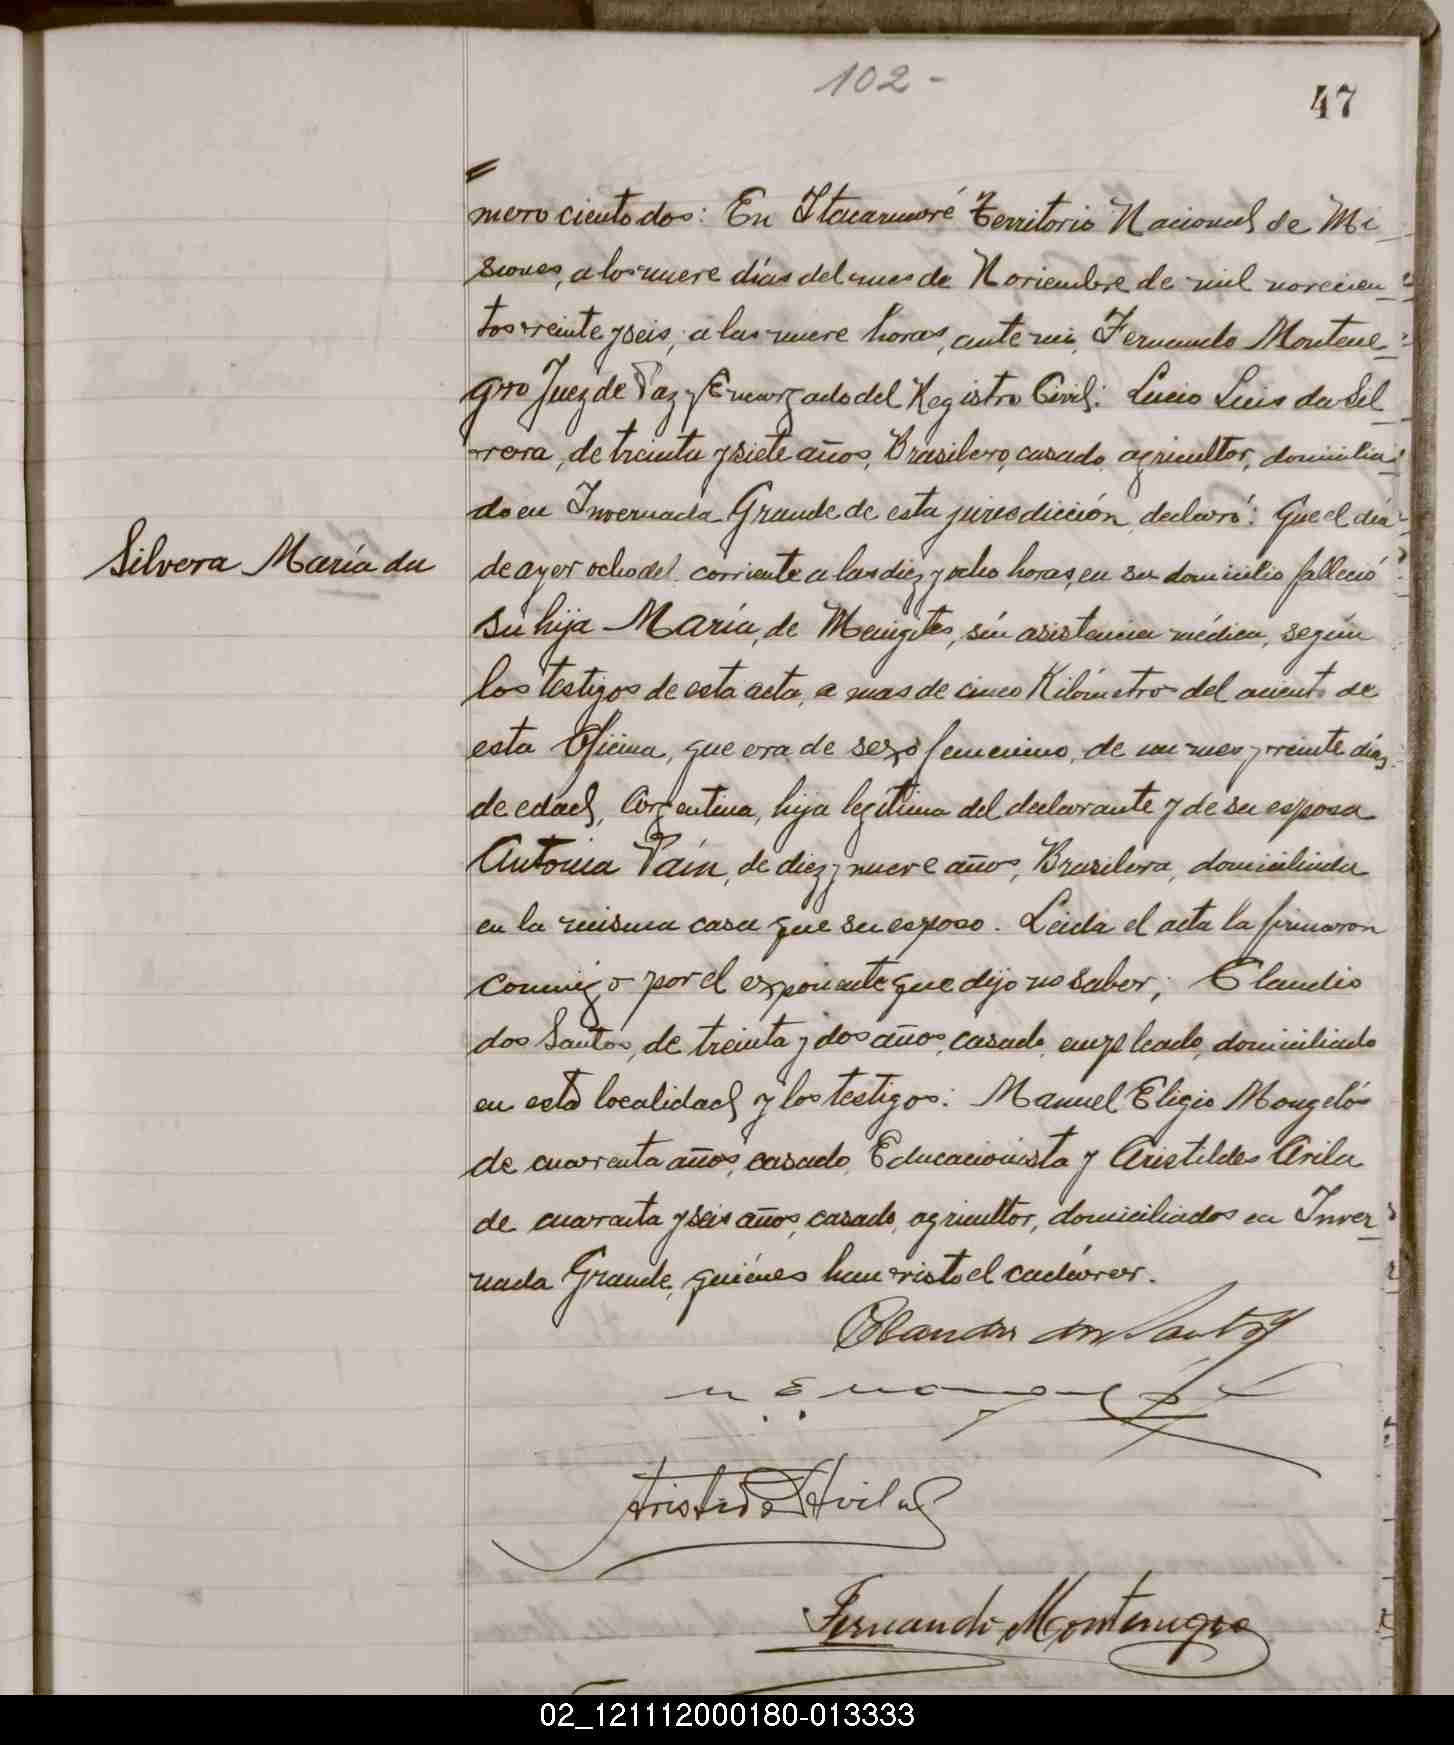 102-
47
mero ciento dos: En Itacaruaré Territorio Nacional de Mi
siones, a los nueve días del mes de Noviembre de mil novecien
tos veinte y seis, a las nueve horas, ante mi, Fernando Montene
gro Juez de Paz y Encargado del Registro Civil: Lucio Luis da Sil
vera, de treinta y siete años, Brasilero, casado, agricultor, domicilia
do en Invernada Grande de esta jurisdicción, declaró: Que el día
Silvera María da
de ayer ocho del corriente a las diez y ocho horas, en su domicilio falleció
su hija María, de Meingites, sin asistencia médica, según
los testigos de esta acta, a mas de cinco Kilómetros del asiento de
esta Oficina, que era de sexo femenino, de un mes y veinte días
de edad, Argentina, hija legítima del declarante y de su esposa
Antonia Paín, de diez y nueve años, Brasilera, domiciliada
en la misma casa que su esposo. Leida el acta la firmaron
conmigo por el exponente que dijo no saber, Claudio
dos Santos, de treinta y dos años, casado, empleado, domiciliado
en esta localidad y los testigos: Manuel Eligio Mongelós
de cuarenta años, casado, Educacionista y Aristildes Avila
de cuarenta y seis años, casado, agricultor, domiciliados en Inver
nada Grande, quiénes han visto el cadáver.
dos Santos
Aristides Avila
Fernando Montenegro
02_121112000180-013333